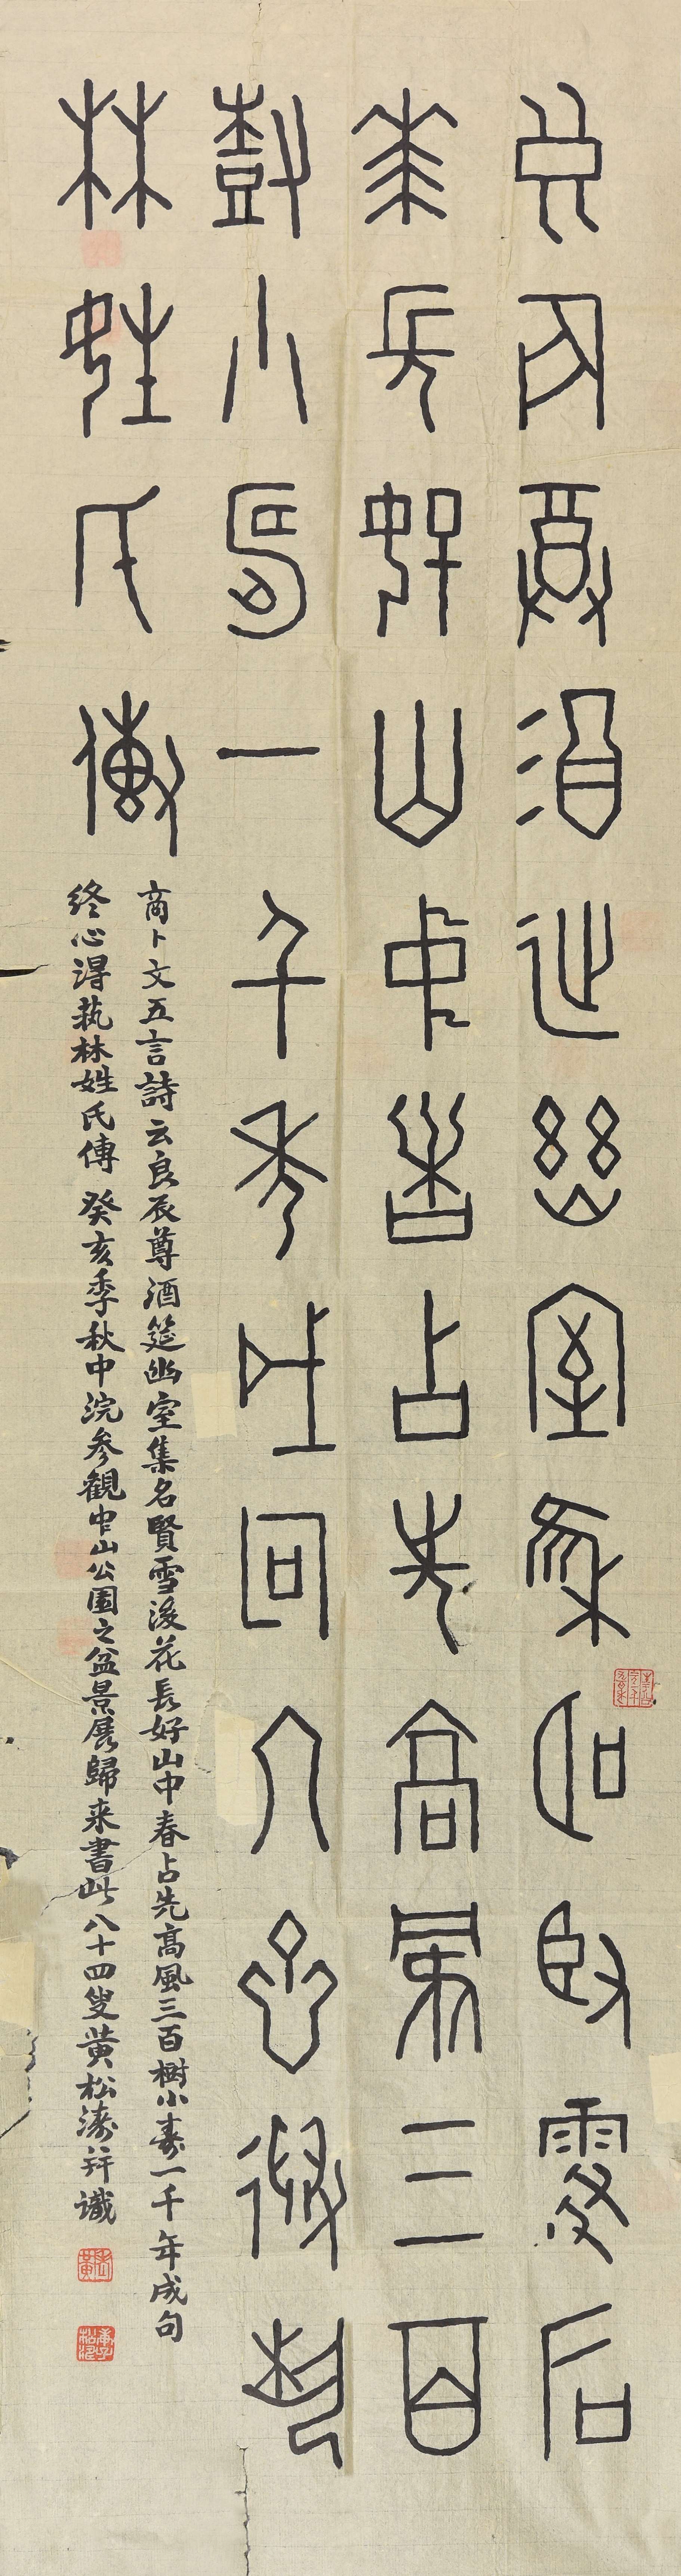 良辰尊酒筵幽室集名賢雪後
花長好山中春占先高風三百
樹小壽一千年成句終心得埶
林姓氏傳
商卜文五言詩云良辰尊酒筵幽室集名賢雪後花長好山中春占先高風三百樹小壽一千年成句
終心得埶林姓氏傳 癸亥季秋中浣參觀中山公園之盆景展歸来書此八十四叟黄松濤并識